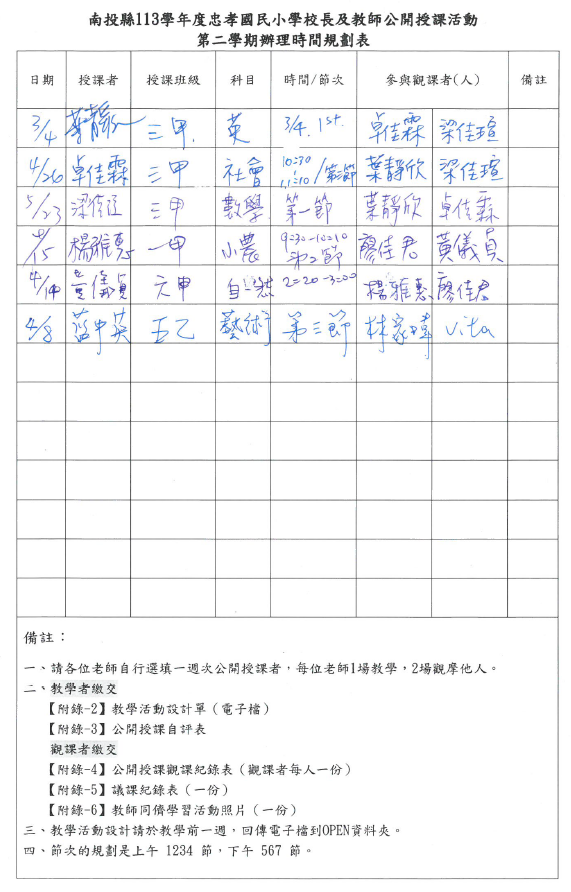 南投縣113學年度忠孝國民小學校長及教師公開授課活動
第二學期辦理時間規劃表
日期 授課者 授課班級 科目 時間/節次 參與觀課者(人) 備註
3/4 葉靜欣 三甲. 英 3/4. 1st. 卓佳霖 梁佳瑄
4/26 卓佳霖 三甲 社會 10:30 - 11:10 /第三節 葉靜欣 梁佳瑄
5/23 梁佳瑄 三甲 數學 第一節 葉靜欣 卓佳霖
4/15 楊雅惠 一甲 小農 9=30-10=10 第2節 廖佳君 黃儀貞
4/14 黃儀貞 六甲 自然 2=20-3=00 楊雅惠 廖佳君
4/8 藍中英 五乙 藝術 第三節 林家暐 Vita
備註：
一、請各位老師自行選填一週次公開授課者，每位老師1場教學，2場觀摩他人。
二、教學者繳交
【附錄-2】教學活動設計單（電子檔）
【附錄-3】公開授課自評表
觀課者繳交
【附錄-4】公開授課觀課紀錄表（觀課者每人一份）
【附錄-5】議課紀錄表（一份）
【附錄-6】教師同儕學習活動照片（一份）
三、教學活動設計請於教學前一週，回傳電子檔到OPEN資料夾。
四、節次的規劃是上午 1234 節，下午 567 節。